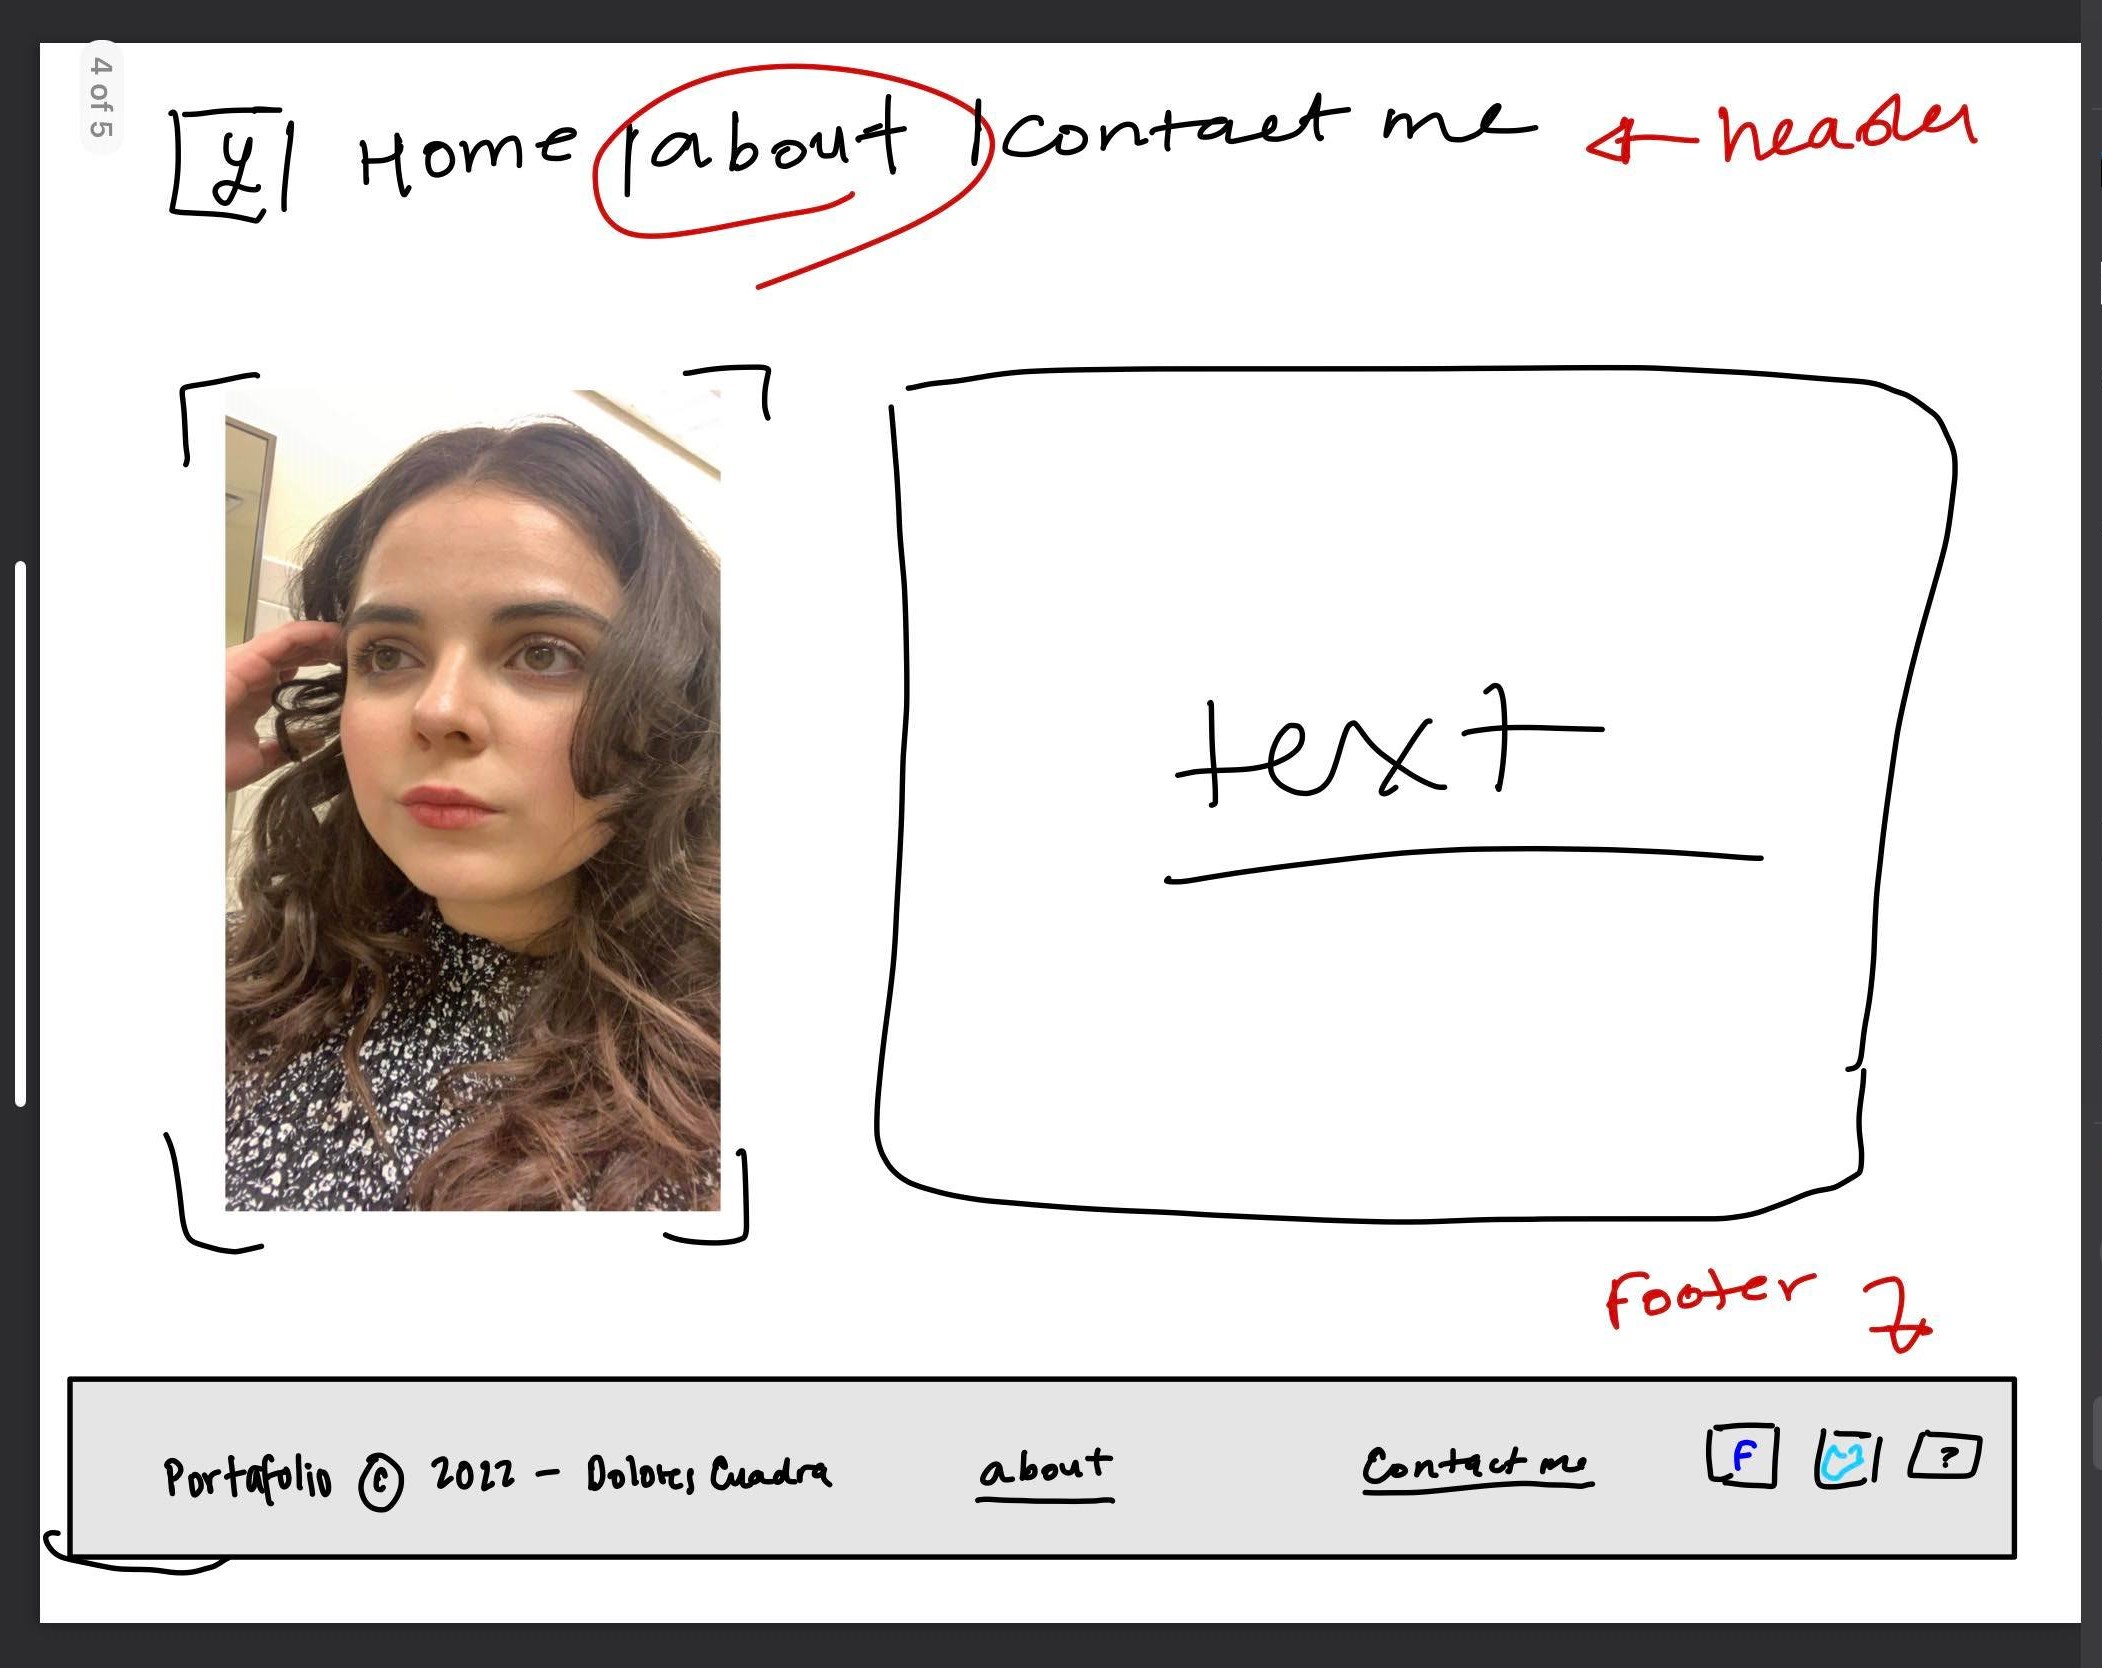 4 of 5
y Home | about | contact me ← header
text
Footer
Portafolio © 2022 - Dolores Cuadra about Contact me F ?